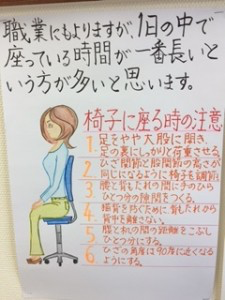 職業にもよりますが、1日の中で
座っている時間が一番長いと
いう方が多いと思います。
椅子に座る時の注意
1. 足をやや大股に開き、
足の裏にしっかり荷重させる。
2. ひざ関節と股関節の高さが
同じになるように椅子を調節
3. 腰と背もたれの間に手のひら
ひとつ分の隙間をつくる。
4. 猫背を防ぐために、背もたれから
背中を離さない。
5. 腹と机の間の距離をこぶし
ひとつ分にする。
6. ひじの角度は90度に近くなる
ようにする。